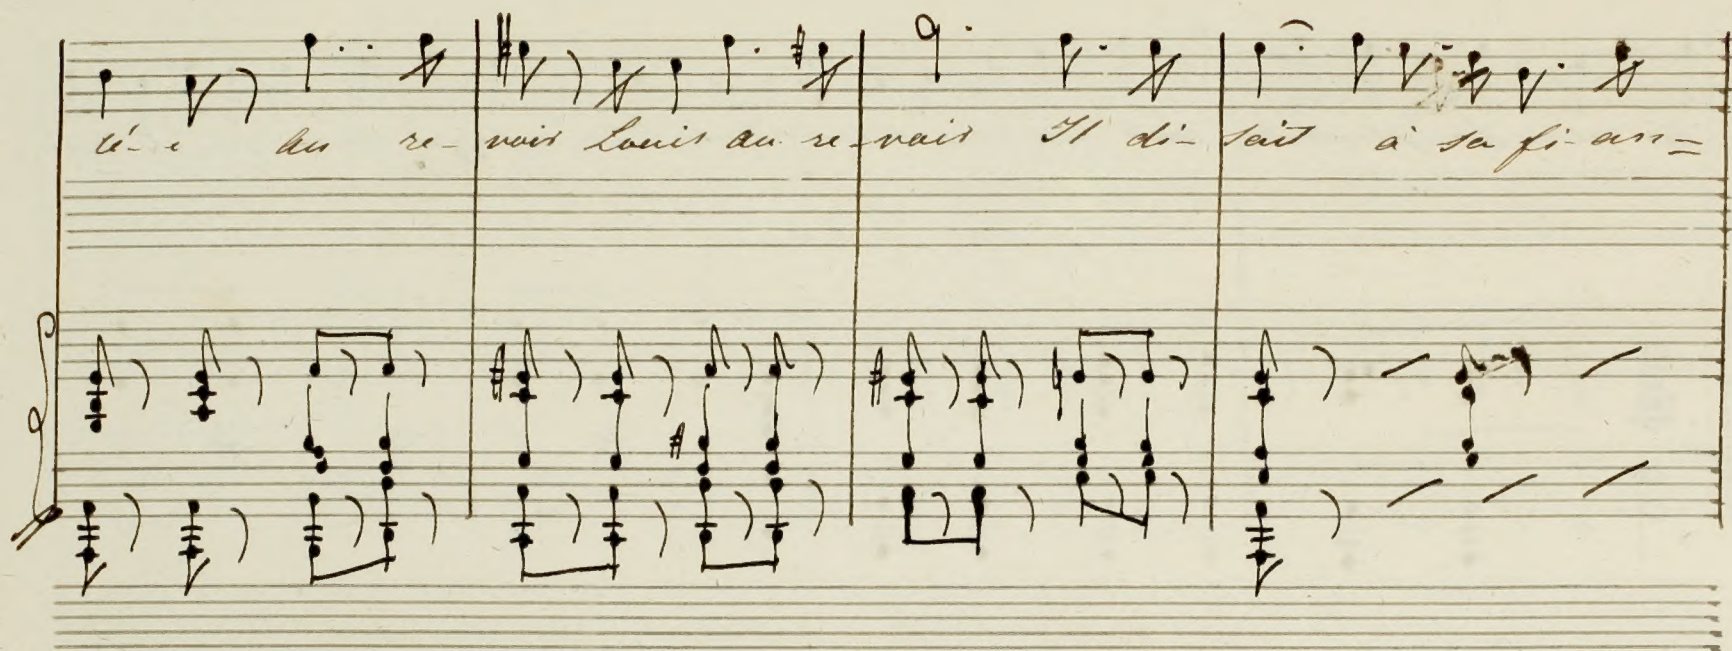 cé-e au re-voir Louis au re-voir Il di-sait à sa fi-an=